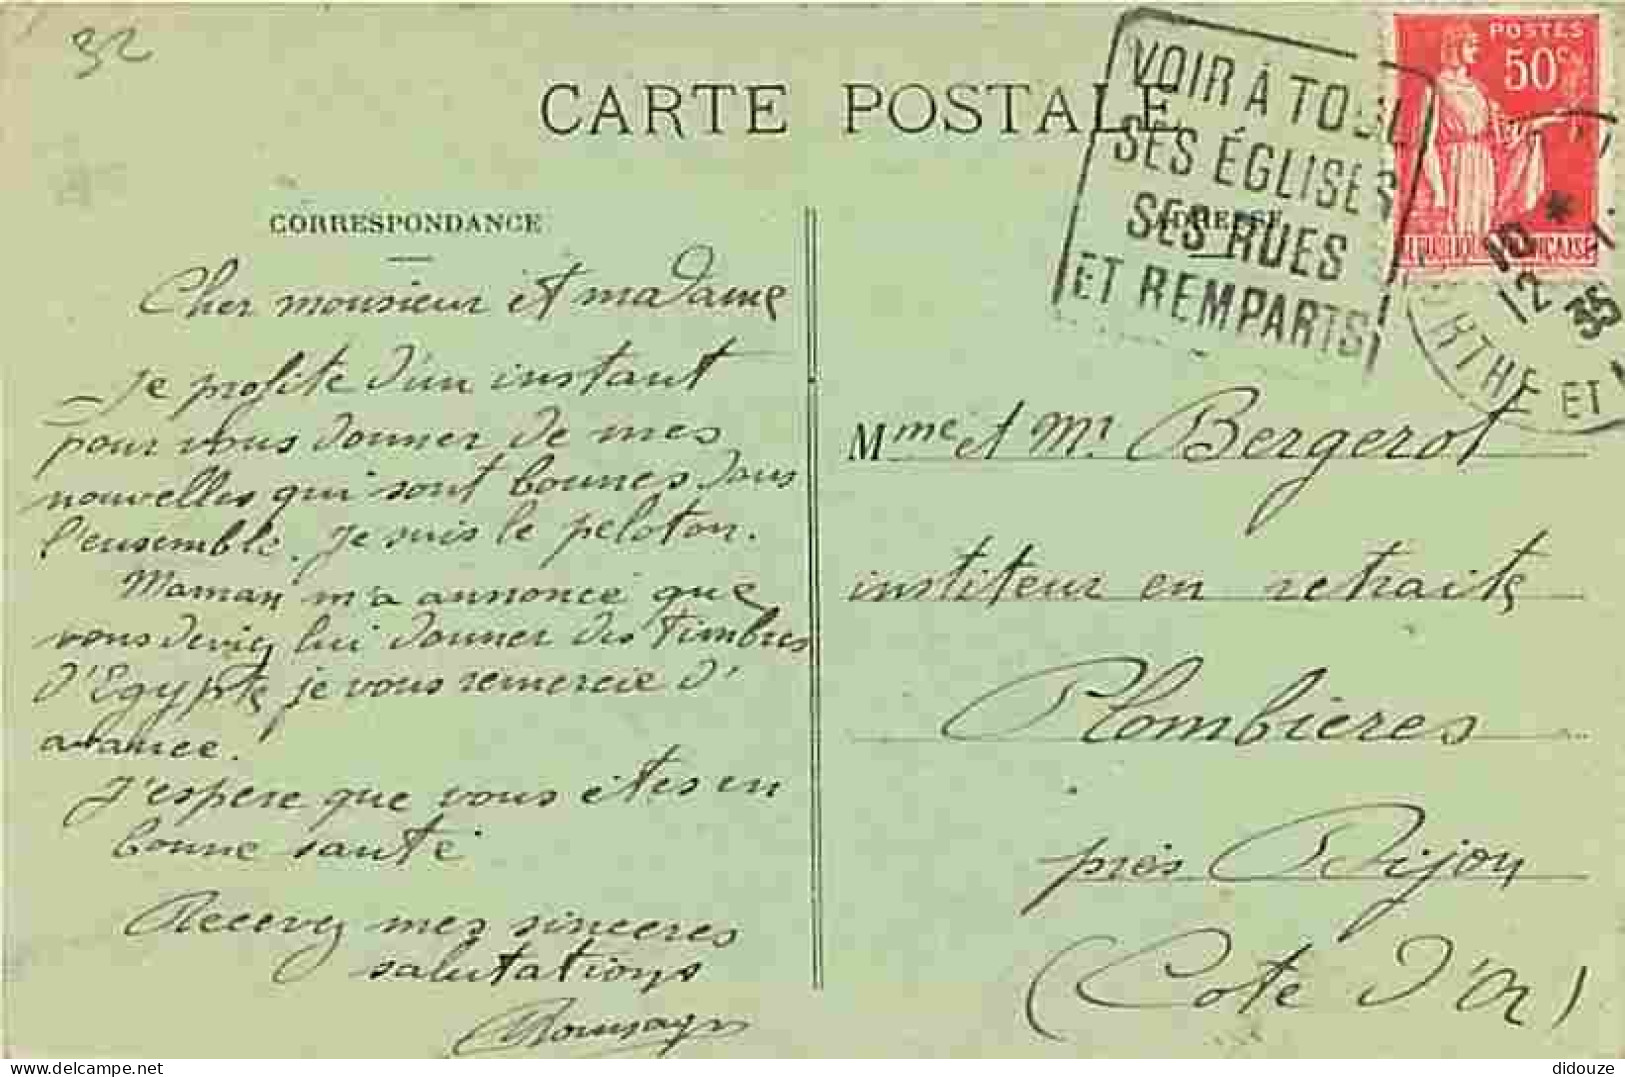 32
CARTE POSTALE
VOIR À TOUL
SES ÉGLISES
SES RUES
ET REMPARTS
POSTES
50c
10 *
12
35
RTHE ET
CORRESPONDANCE
ADRESSE
Cher monsieur et madame
Je profite d'un instant
pour vous donner de mes
nouvelles qui sont bonnes dans
l'ensemble. Je suis le peloton.
Maman m'a annoncé que
vous deviez lui donner des timbres
d'Egypte je vous remercie d'
avance.
J'espère que vous êtes en
bonne santé
Recevez mes sincères
salutations
Mme et Mr Bergerot
institeur en retraite
Plombières
près Dijon
(Cote d'Or)
didouze